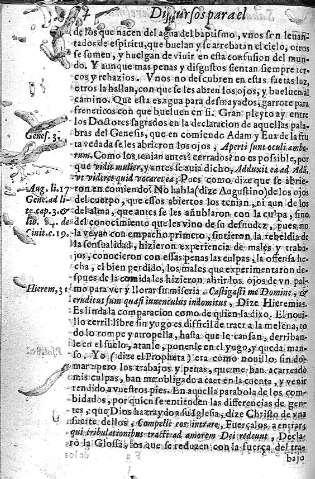 Discursos para el
de los que nacen del agua del baptismo, vnos son leuan-
tados de espiritu, que buelan y se arrebatan al cielo, otros
se sumen, y huelgan de viuir en esta confusion del mun
do. Y aunque mas penas y disgustos sientan siempre ter-
cos y rehazios. Vnos no descubren en estas saetas luz,
otros la hallan, con que se les abren los ojos, y bueluen al
camino. Que esta es agua para desmayados, garrote para
freneticos con que bueluen en si. Gran pleyto ay entre
los Doctores sagrados en la declaracion de aquellas pala
Genes. 3.
bras del Genesis, que en comiendo Adam y Eua de la fru
ta vedada se les abrieron los ojos, Aperti sunt oculi ambo-
rum. Como los tenian antes cerrados? no es possible, por
que vidit mulier, y antes se auia dicho, Adduxit ea ad Adã,
vt videret quid vocaret ea; Pues como dize que se abrie-
Aug. li. 17
ron en comiendo? No habla (dize Augustino) de los ojos
Gene. ad li-
del cuerpo, que essos abiertos los tenian, ni aun de los
te. cap. 3. &
del alma, que antes se les añublaron con la culpa, sino
del conocimiento que les vino de su desnudez, pues no
Ciuit. c. 19.
la veyan con empacho primero, sintieron la rebeldia de
la sensualidad, hizieron experiencia de males y traba-
jos, conocieron con essas penas las culpas, la ofensa he-
cha, el bien perdido, los males que experimentaron des-
pues de la comida les hizieron abrir los ojos de vn pal-
Hierem. 31
mo para ver y llorar su miseria. Castigasti me Domine, &
eruditus sum quasi iuuenculus indomitus, Dize Hieremias.
Es linda la comparacion como de quien la dixo. El noui-
llo cerril libre sin yugo es dificil de traer a la melena, to
do lo rompe y atropella, hasta que le cansan, derriban-
le en el suelo, atanle, ponenle en el yugo, y queda man-
so. Yo (dize el Propheta) era como nouillo sin do-
mar, pero los trabajos y penas, que me han acarreado
mis culpas, han me obligado a caer en la cuenta, y venir
rendido a vuestros pies. En aquella parabola de los com-
bidados, por quien se entienden las diferencias de gen-
tes, que Dios ha traydo a su Iglesia, dize Christo de vna
suerte dellos, Compelle eos intrare, Fuerçalos a entrar,
qui tribulationibus tracti ad amorem Dei redeunt, Decla-
rò la Glossa, los que se reduzen con la fuerça del tra
bajo